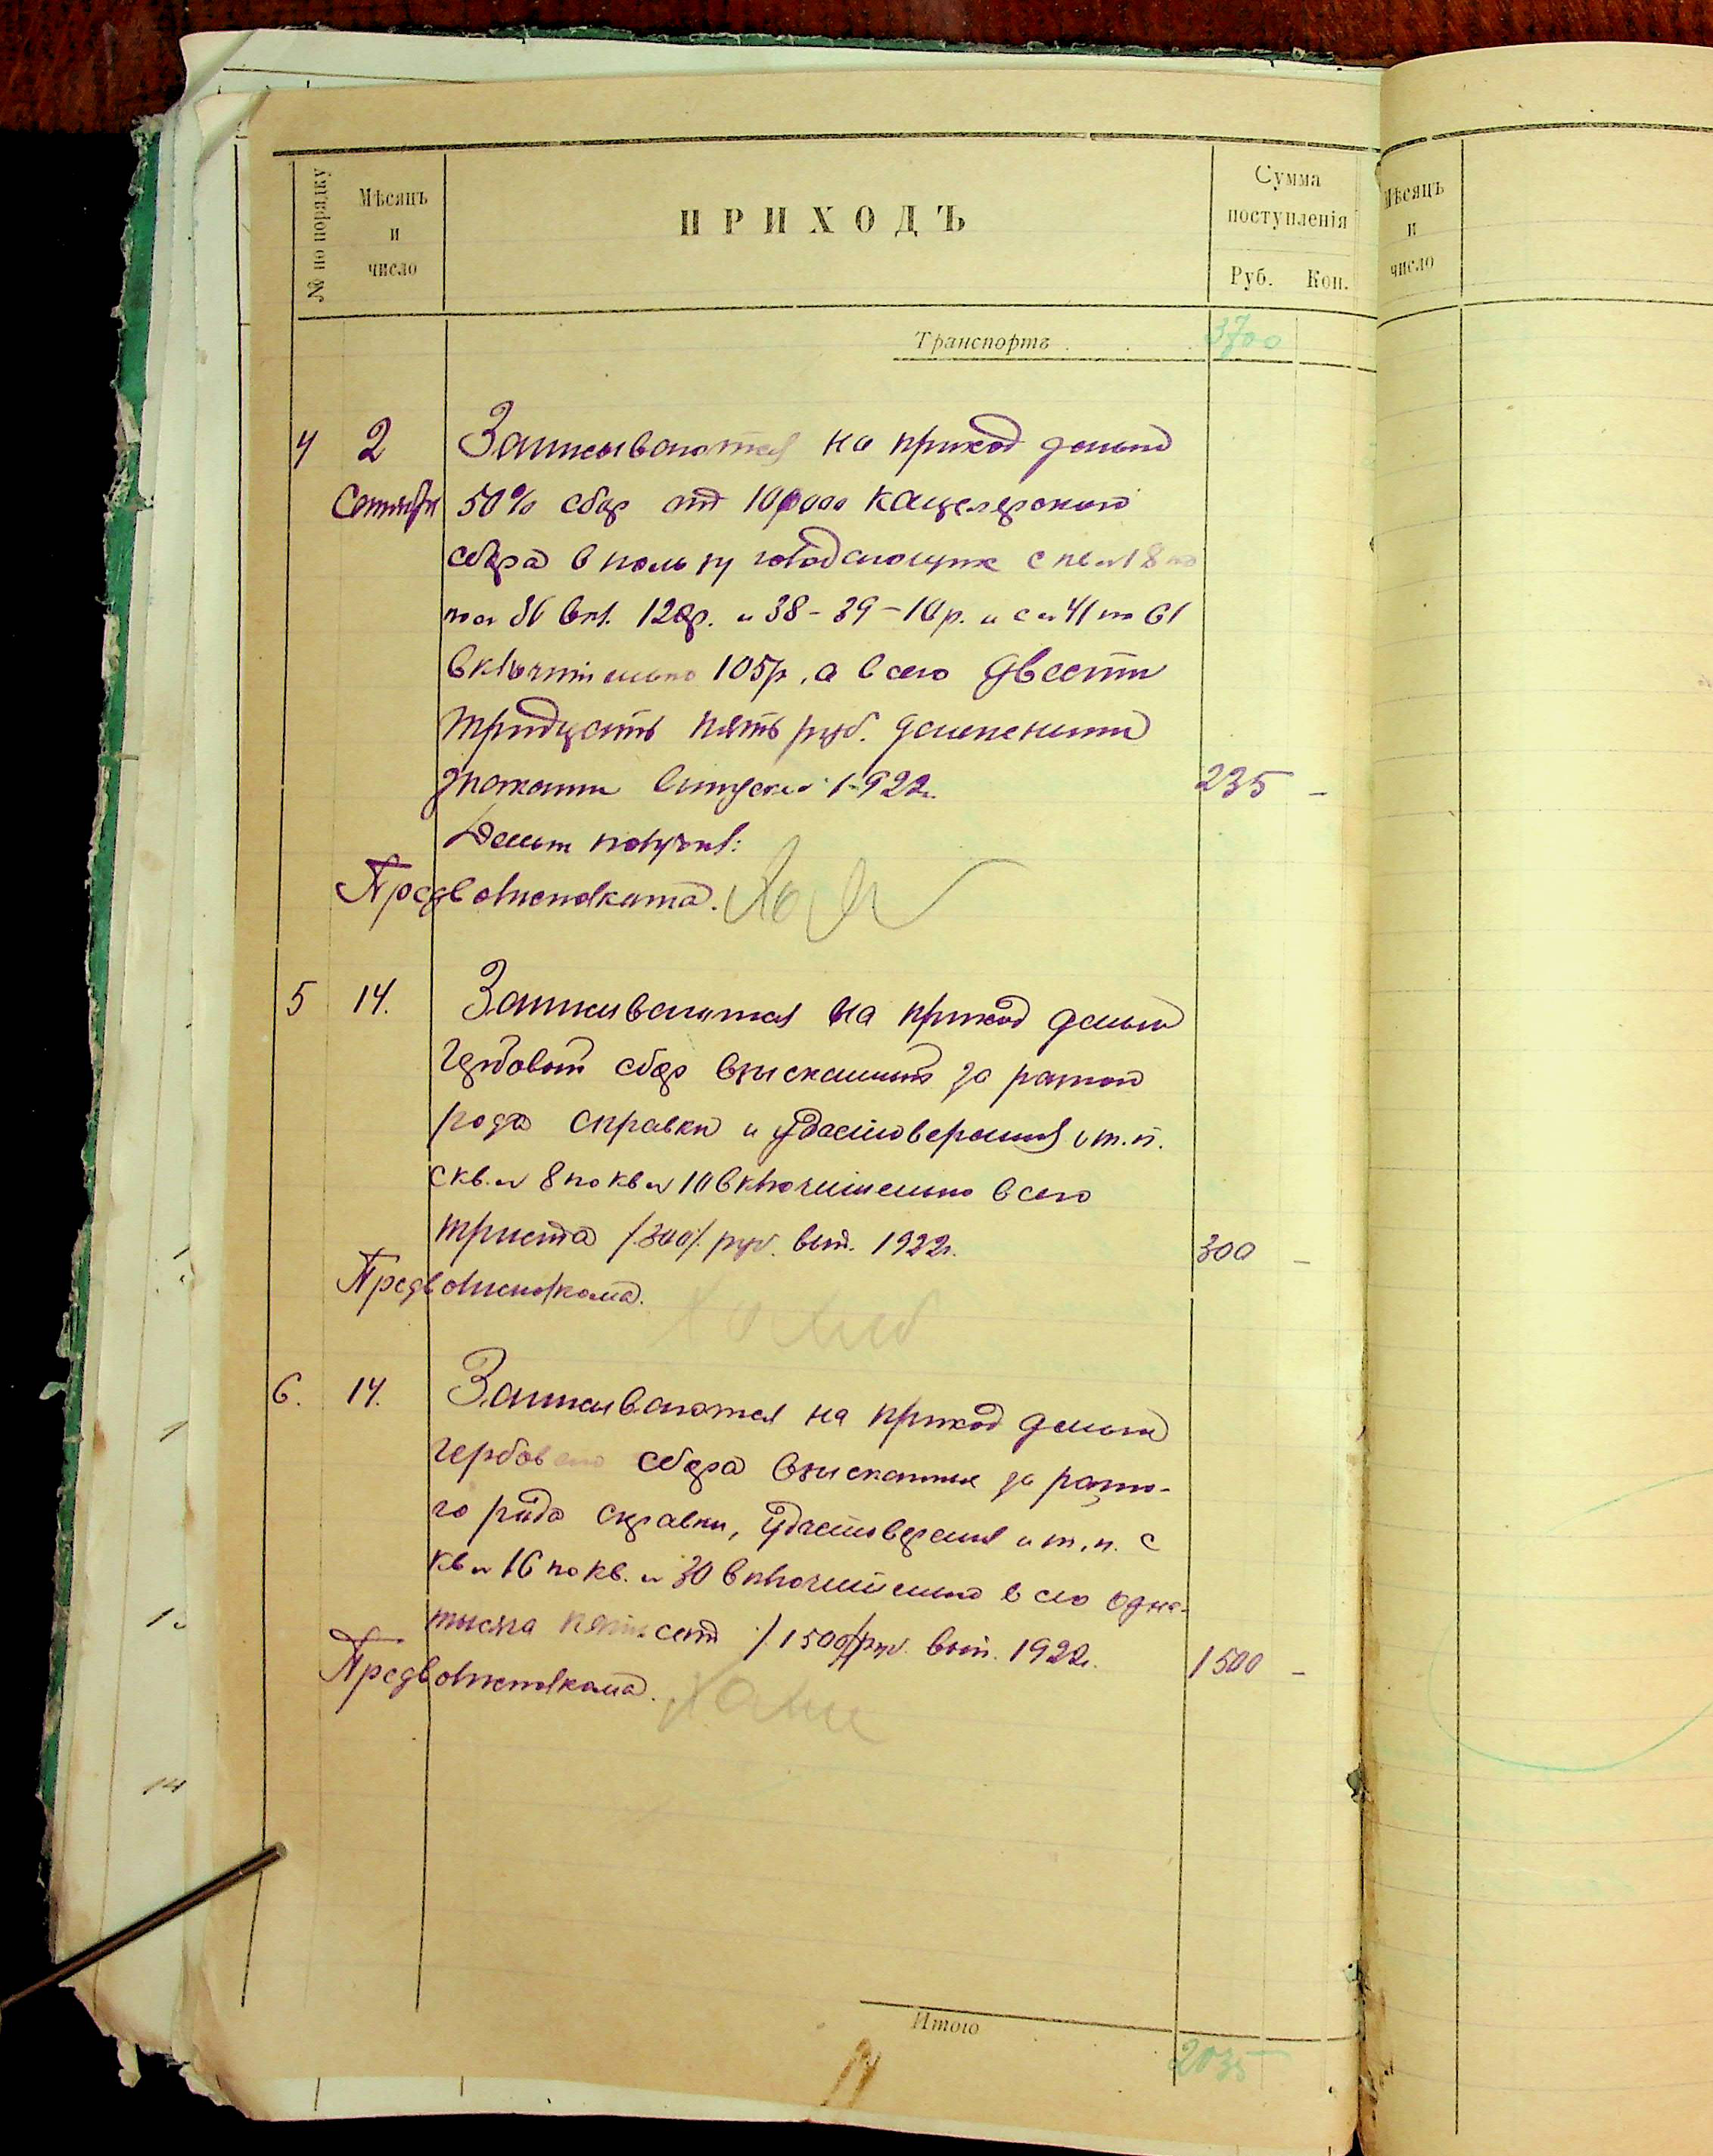 № по порядку
Мѣсяцъ
и
число
ПРИХОДЪ
Сумма
поступленія
Руб. Коп.
Мѣсяцъ
и
число
Транспортъ 3700
4 2 Записываются на приход деньги
50% сбор от канцелярского
сбора в пользу голодающих с
по 36 вкл. 120р. и 38-39-10р. и с 41 по 61
включительно 105р, а всего двести
тридцать пять руб. денежными
знаками выпуска 1922г. 235 -
Деньги получил:
Предволисполкома.
5 14. Записываются на приход деньги
Гербовый сбор взысканный за разного
рода справки и удостоверения и т.п.
с кв. № 8 по кв № 10 включительно всего
триста /300/. руб. вып. 1922г. 300 -
Предволисполкома.
6. 14. Записываются на приход деньги
гербового сбора взысканные за разно-
го рода справки, удостоверения и т.п. с
кв № 16 по кв. № 30 включительно всего одна
тысяча пятьсот /1500/ руб. вып. 1922г. 1500 -
Предволисполкома.
Итого
2035
14